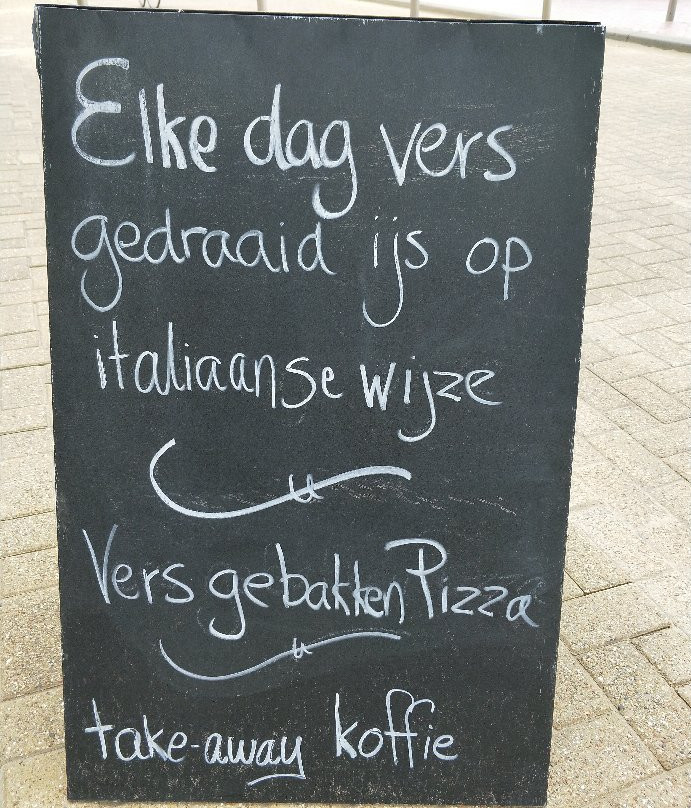 Elke dag vers
gedraaid ijs op
italiaanse wijze
Vers gebakken Pizza
take-away koffie